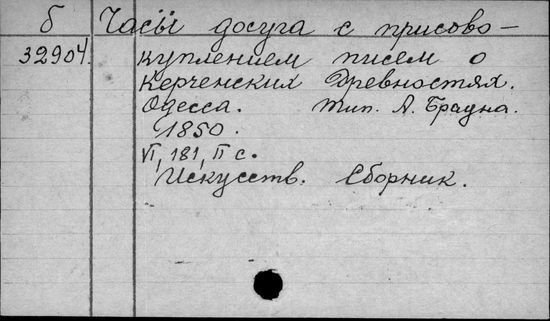 б Часы досуга с присово-
32904. куплением писем о
Керченских Древностях.
Одесса. Тип. А. Брауна.
1850.
VI, 181, II с.
Искусств. Сборник.